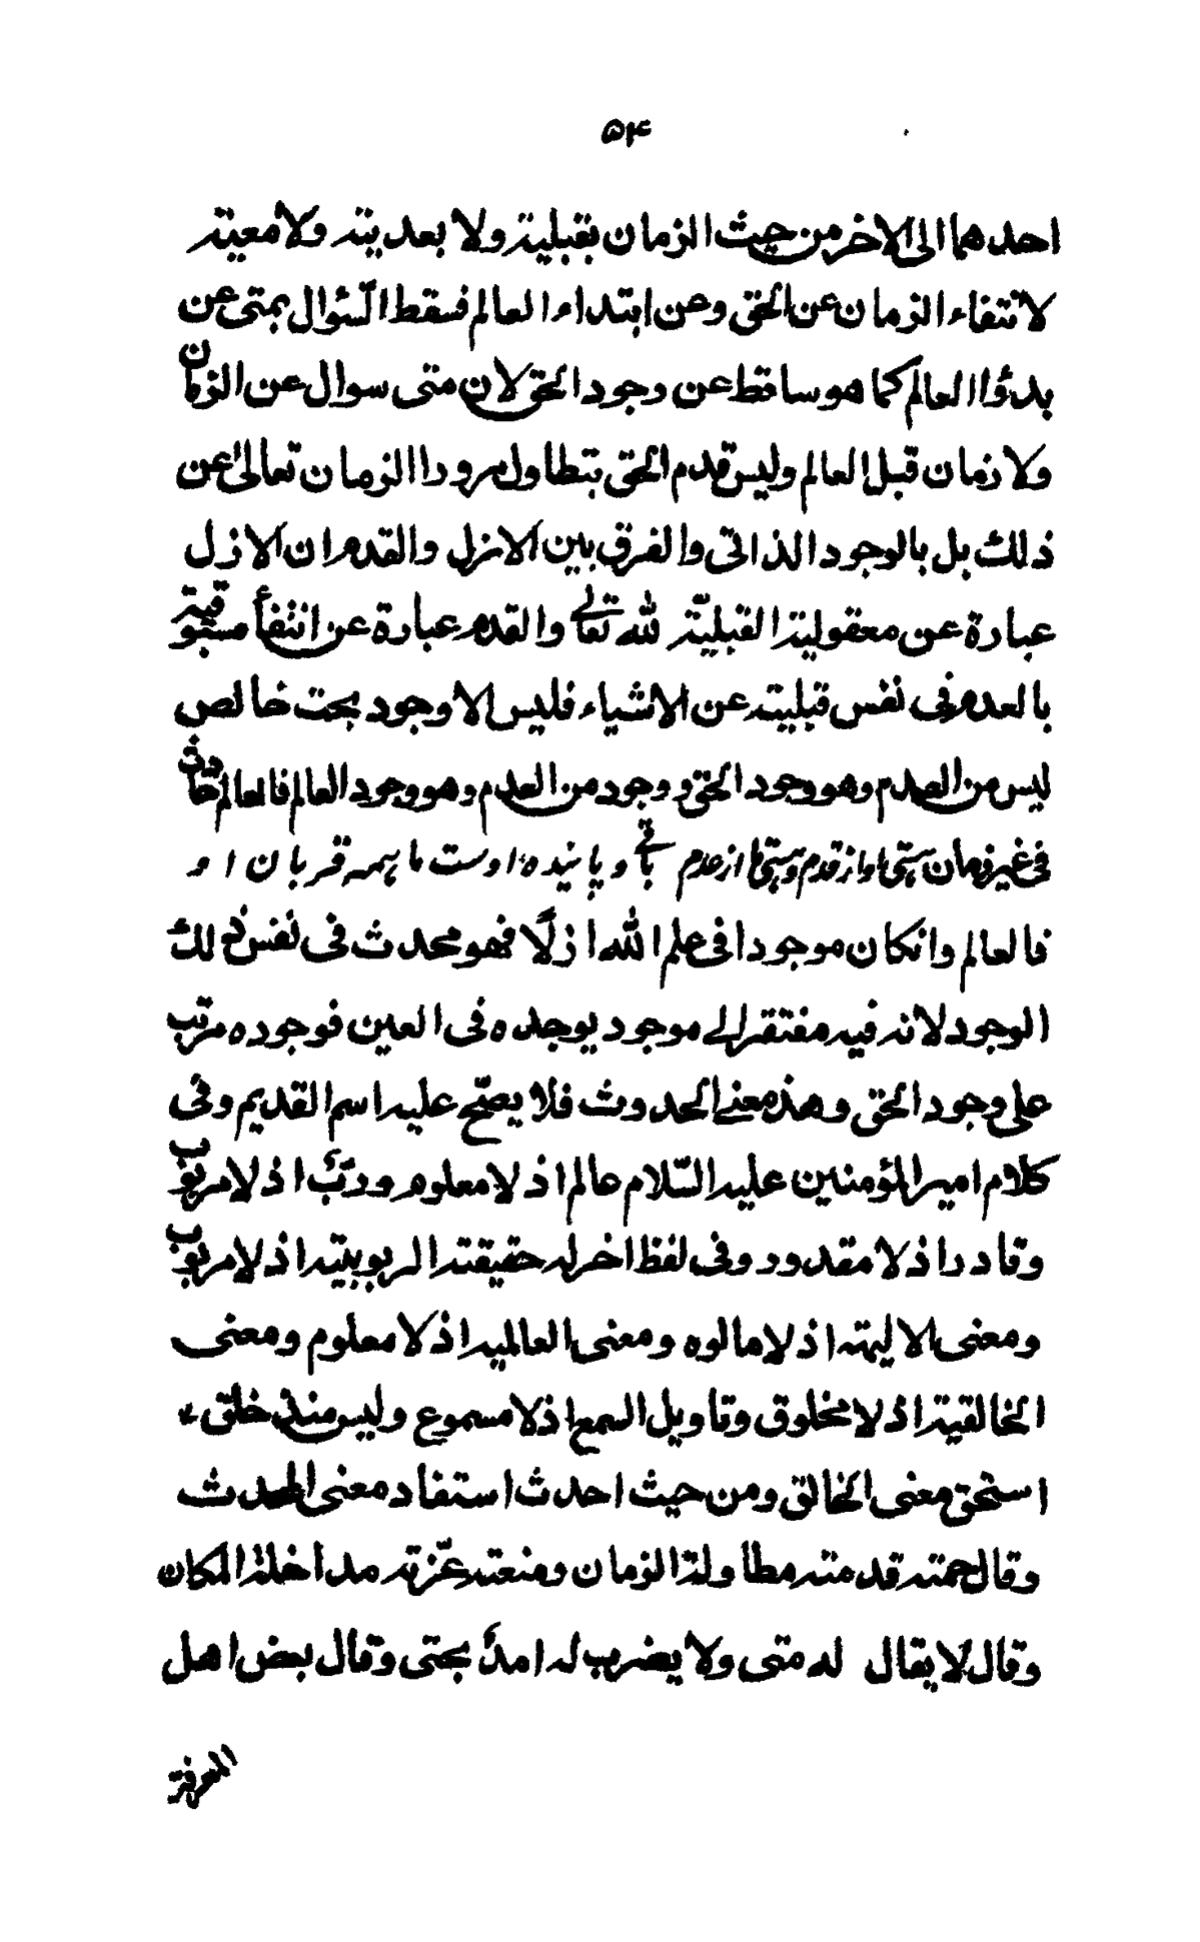 ۵۴
احدهما الى الاخر من حيث الزمان بقبلية ولا بعدية ولا معية
لانتفاء الزمان عن الحق وعن ابتداء العالم فسقط السّؤال بمتى عن
بدؤا العالم كما هو ساقط عن وجود الحق لان متى سوال عن الزمان
ولا زمان قبل العالم وليس قدم الحق بتطاول مرودا الزمان تعالىٰ عن
ذلك بل بالوجود الذاتى والفرق بين الازل والقدم ان الازل
عبارة عن معقولية القبليّة لله تعالے والقدم عبارة عن انتفأ مسبوقية
بالعدم فى نفس قبلية عن الاشياء فليس الا وجود بحت خالص
ليس من العدم وهو وجود الحق و وجود من العدم وهو وجود العالم فالعالم حادث
فى غير زمان ہستى او از قدم وہستى ما از عدم باقے و پاينده اوست ما ہمہ قربان او
فالعالم وانكان موجودا فى علم الله ازلًا فهو محدث فى نفس ذلك
الوجود لانه فيه مفتقر الے موجود يوجده فى العين فوجوده مرتب
على وجود الحق وهذ معنے الحدوث فلا يصّح عليه اسم القديم وفى
كلام امير المؤمنين عليه السّلام عالم اذ لا معلوم وربٌّ اذ لا مربوب
وقادر اذ لا مقدور وفى لفظ اخر له حقيقة الربوبية اذ لا مربوب
ومعنى الالهية اذ لا مالوه ومعنى العالمية اذ لا معلوم ومعنى
الخالقية اذ لا مخلوق وتاويل السمع اذ لا مسموع وليس منذ خلق
استحق معنى الخالق ومن حيث احدث استفاد معنى المحدث
وقال حمته قدمته مطاولة الزمان ومنعته عّزته مداخلة المكان
وقال لا يقال له متى ولا يضرب له امدٌ بحتى وقال بعض اهل
المعرفة